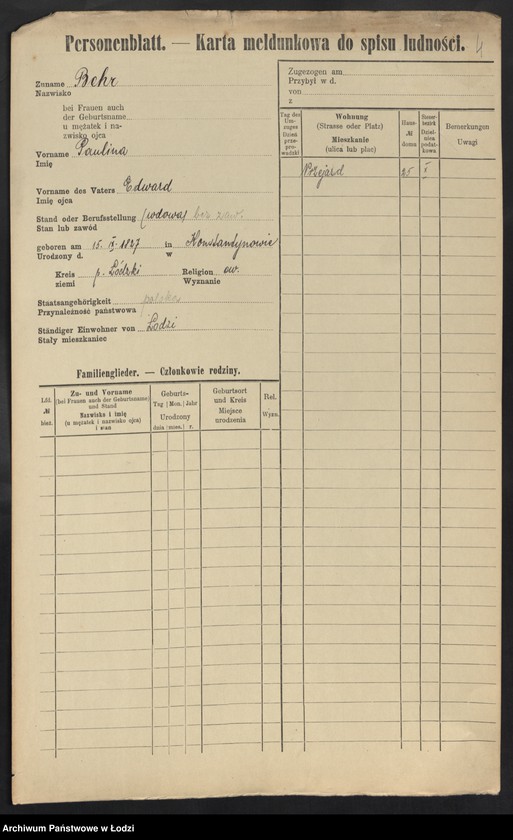 Personenblatt. — Karta meldunkowa do spisu ludności. 4
Zuname Behr
Nazwisko
bei Frauen auch
der Geburtsname
u mężatek i na-
zwisko ojca
Vorname Paulina
Imię
Vorname des Vaters Edward
Imię ojca
Stand oder Berufsstellung (wdowa) bez zaw.
Stan lub zawód
geboren am 15. IX. 1827 in Konstantynowie
Urodzony d. w
Kreis p. Łódzki Religion ew.
ziemi Wyznanie
Staatsangehörigkeit polska
Przynależność państwowa
Ständiger Einwohner von Łodzi
Stały mieszkaniec
Zugezogen am
Przybył w d.
von
z
Tag des Um-zuges Dzień prze-prowadzki
Wohnung
(Strasse oder Platz)
Mieszkanie
(ulica lub plac)
Haus-
№
domu
Bemerkungen
Uwagi
Przejazd 25 I
Familienglieder. — Członkowie rodziny.
Lfd.
№
bież.
Zu- und Vorname
(bei Frauen auch der Geburtsname)
und Stand
Nazwisko i imię
(u mężatek i nazwisko ojca)
i stan
Geburts-
Tag | Mon. | Jahr
Urodzony
dnia | mies. | r.
Geburtsort
und Kreis
Miejsce
urodzenia
Rel.
Wyzn.
Archiwum Państwowe w Łodzi